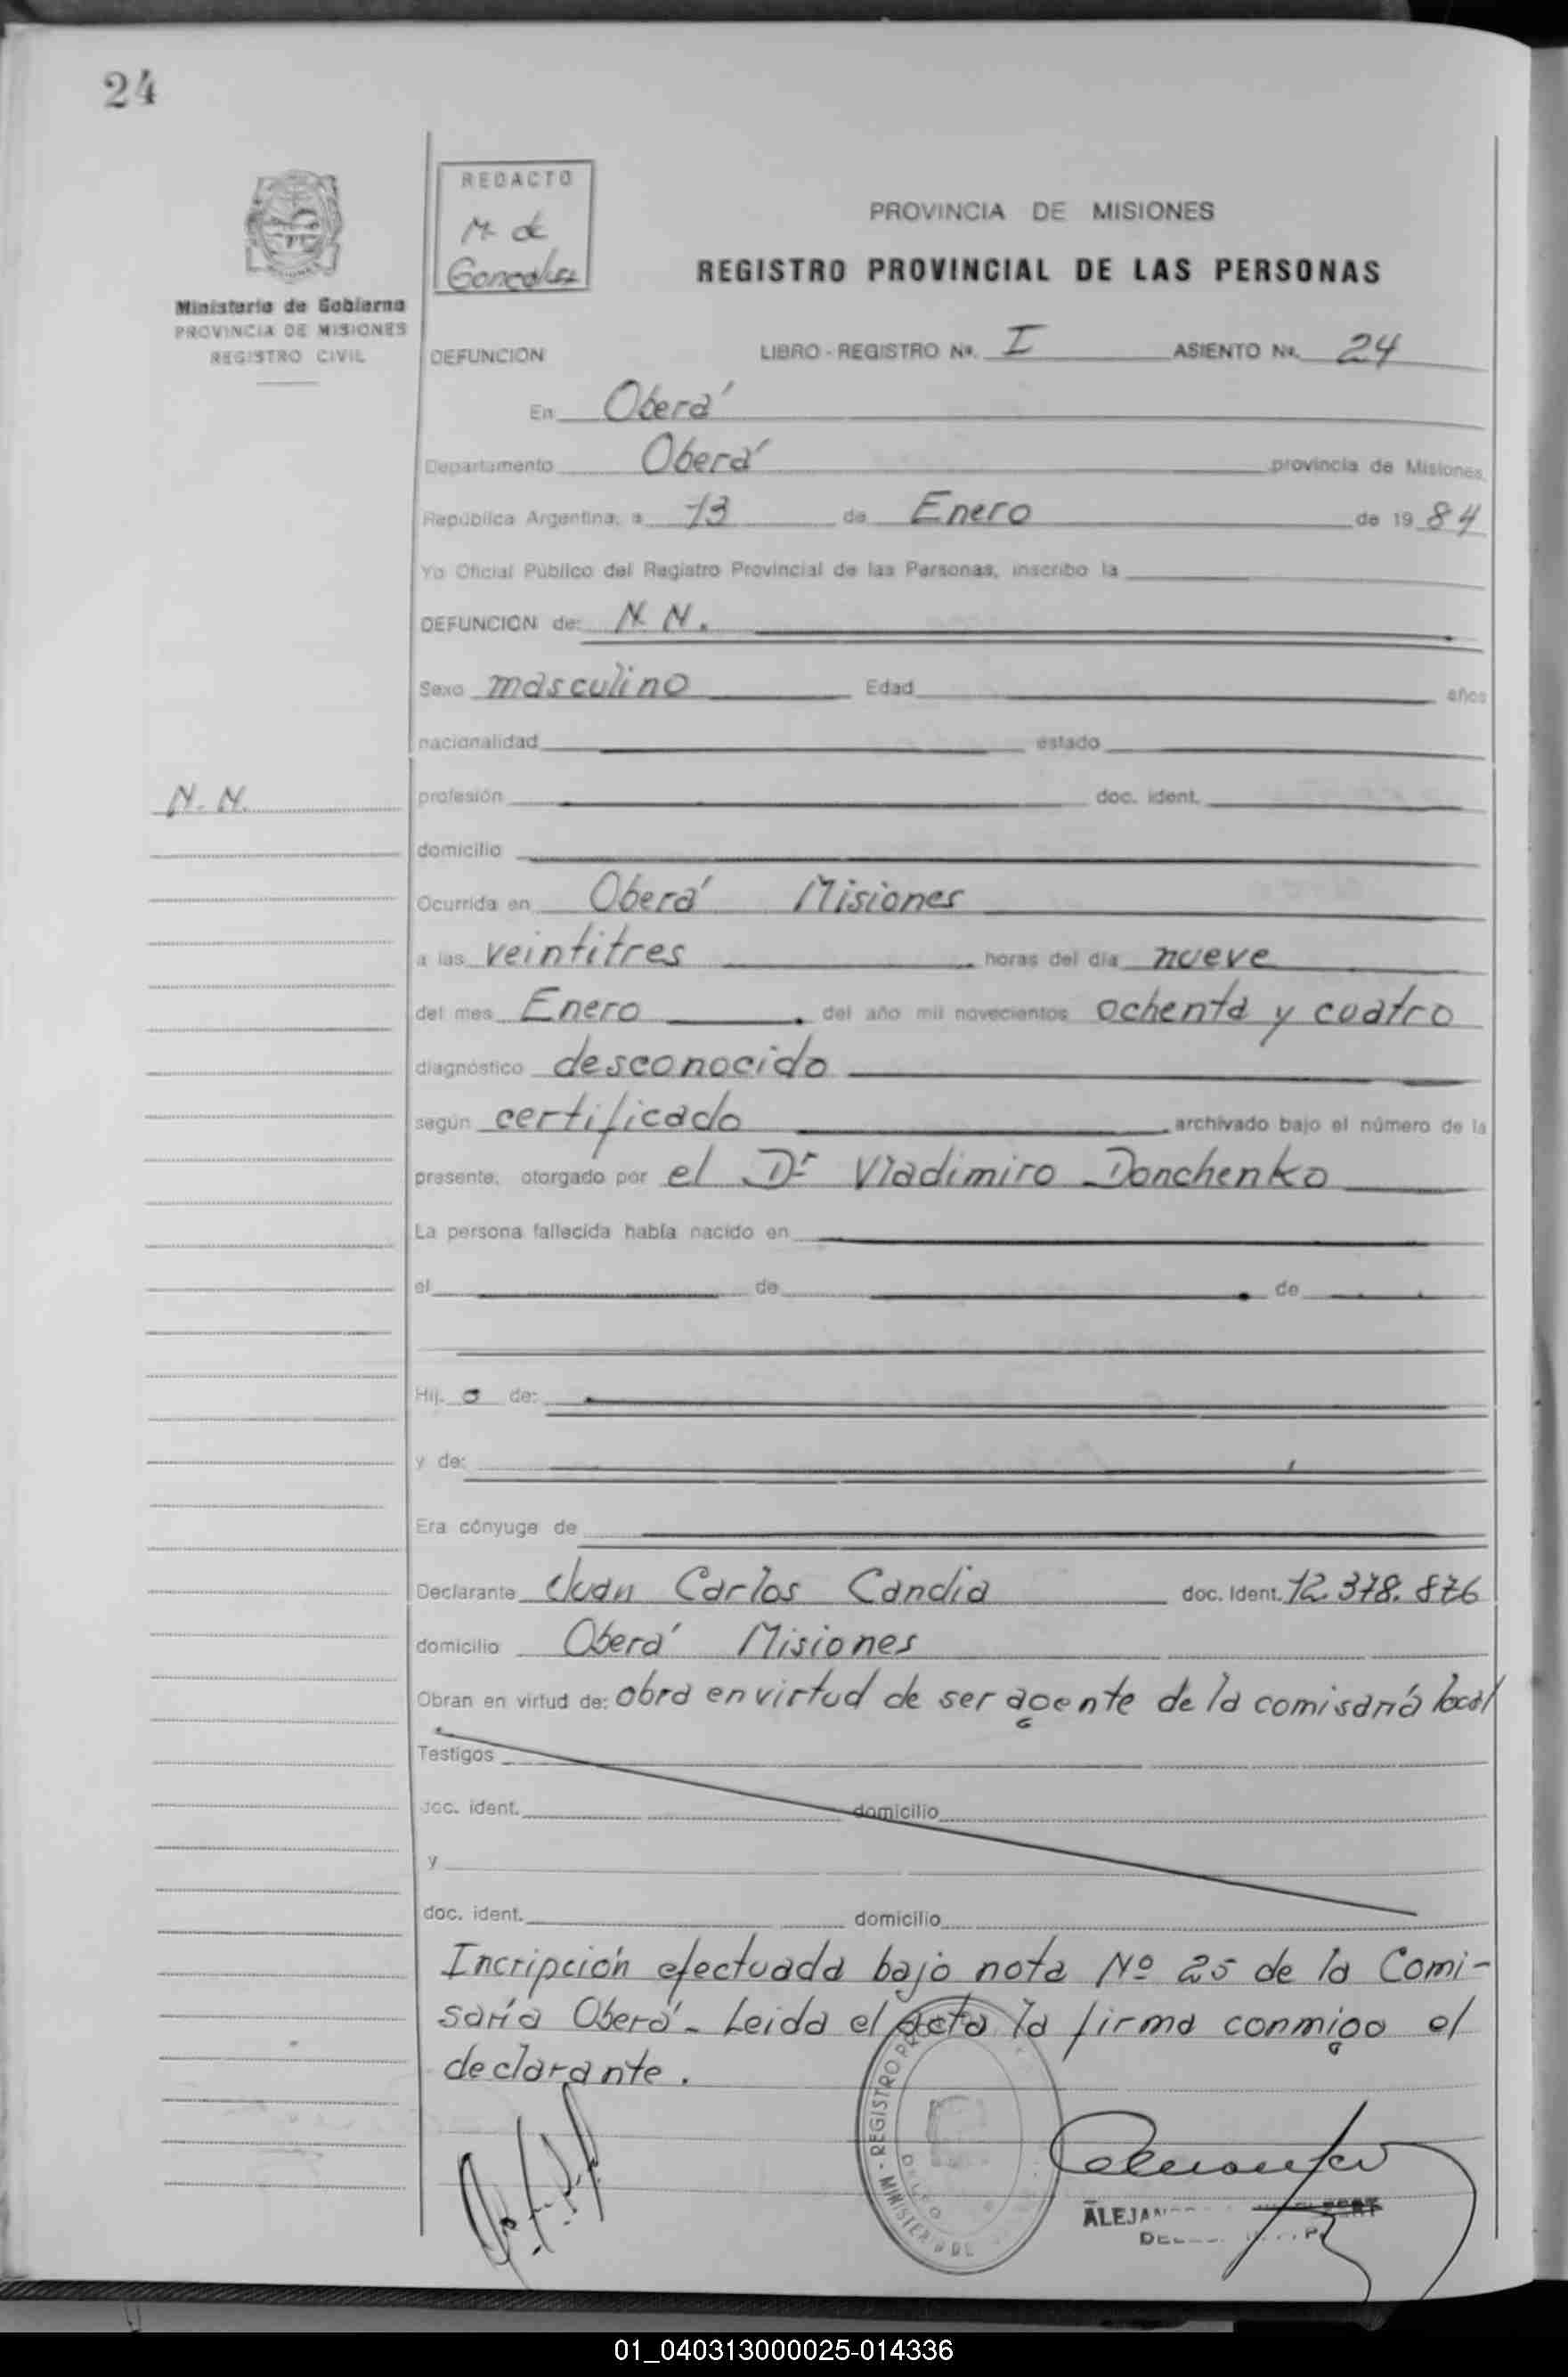 24
REDACTO
M. de
Goncalvez
Ministerio de Gobierno
PROVINCIA DE MISIONES
REGISTRO CIVIL
PROVINCIA DE MISIONES
REGISTRO PROVINCIAL DE LAS PERSONAS
DEFUNCION LIBRO - REGISTRO Nº. I ASIENTO Nº. 24
En Oberá
Departamento Oberá provincia de Misiones,
República Argentina, a 13 de Enero de 1984
Yo Oficial Público del Registro Provincial de las Personas, inscribo la
DEFUNCION de: N. N.
Sexo masculino Edad años
nacionalidad estado
N. N.
profesión doc. ident.
domicilio
Ocurrida en Oberá Misiones
a las veintitres horas del día nueve
del mes Enero del año mil novecientos ochenta y cuatro
diagnóstico desconocido
según certificado archivado bajo el número de la
presente, otorgado por el Dr Vladimiro Donchenko
La persona fallecida había nacido en
el de de
Hij. o de:
y de:
Era cónyuge de
Declarante Juan Carlos Candia doc. Ident. 12.378.876
domicilio Oberá Misiones
Obran en virtud de: obra en virtud de ser agente de la comisaría local
Testigos
doc. ident. domicilio
y
doc. ident. domicilio
Incripción efectuada bajo nota Nº 25 de la Comi-
saría Oberá - Leida el acta la firma conmigo el
declarante.
REGISTRO
MINISTERIO DE
01_040313000025-014336